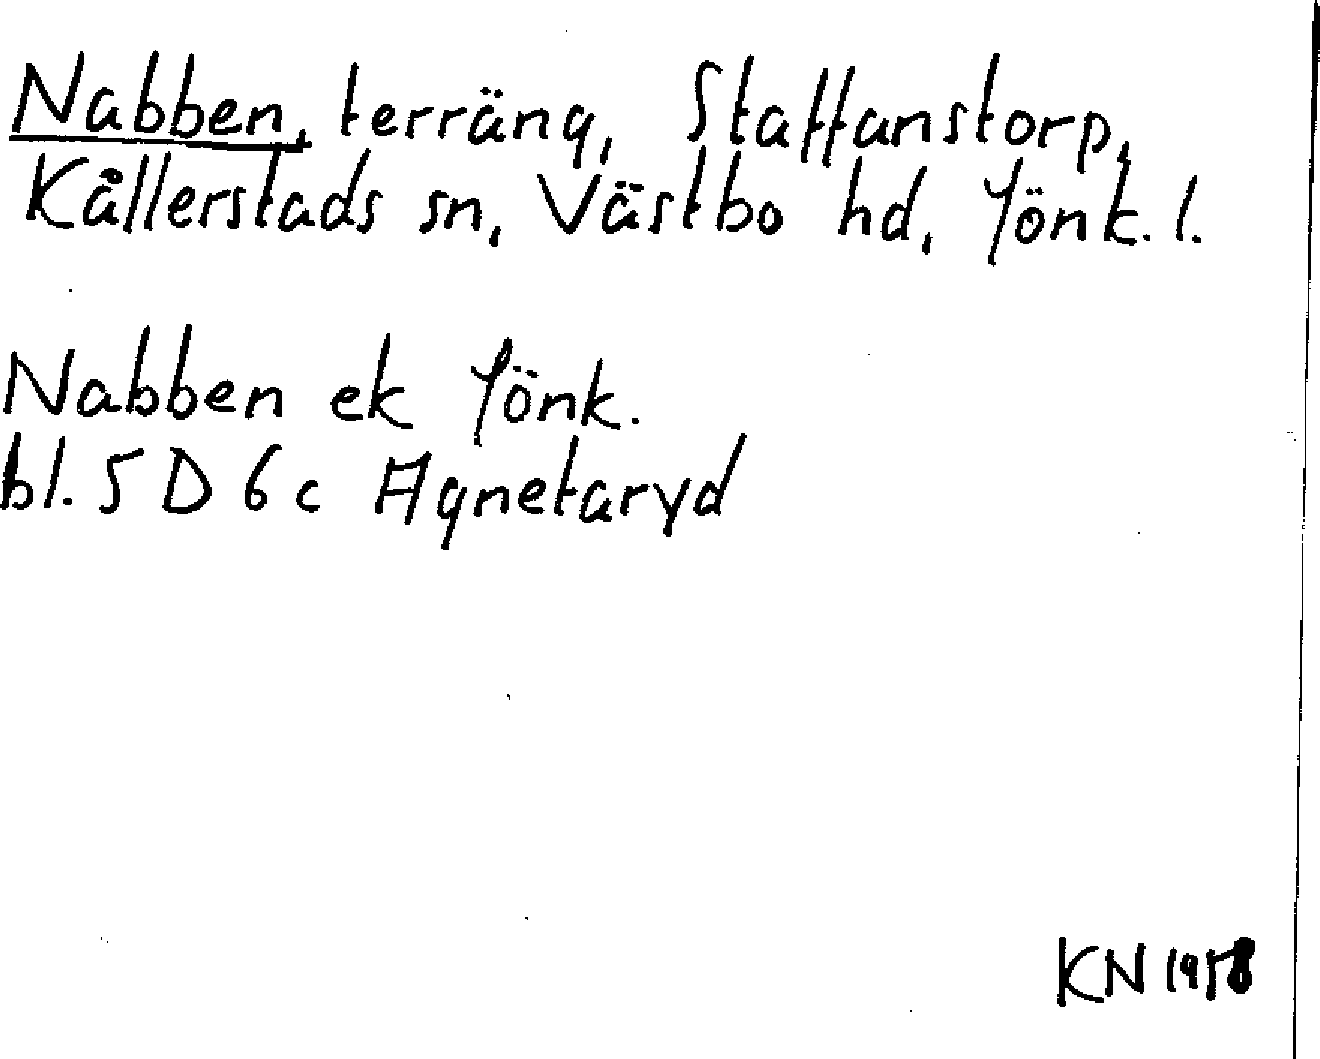 Nabben, terräng, Staffanstorp,
Kållerstads sn, Västbo hd, Jönk. l.
Nabben ek Jönk.
bl. 5 D 6 c Agnetaryd
KN 1958